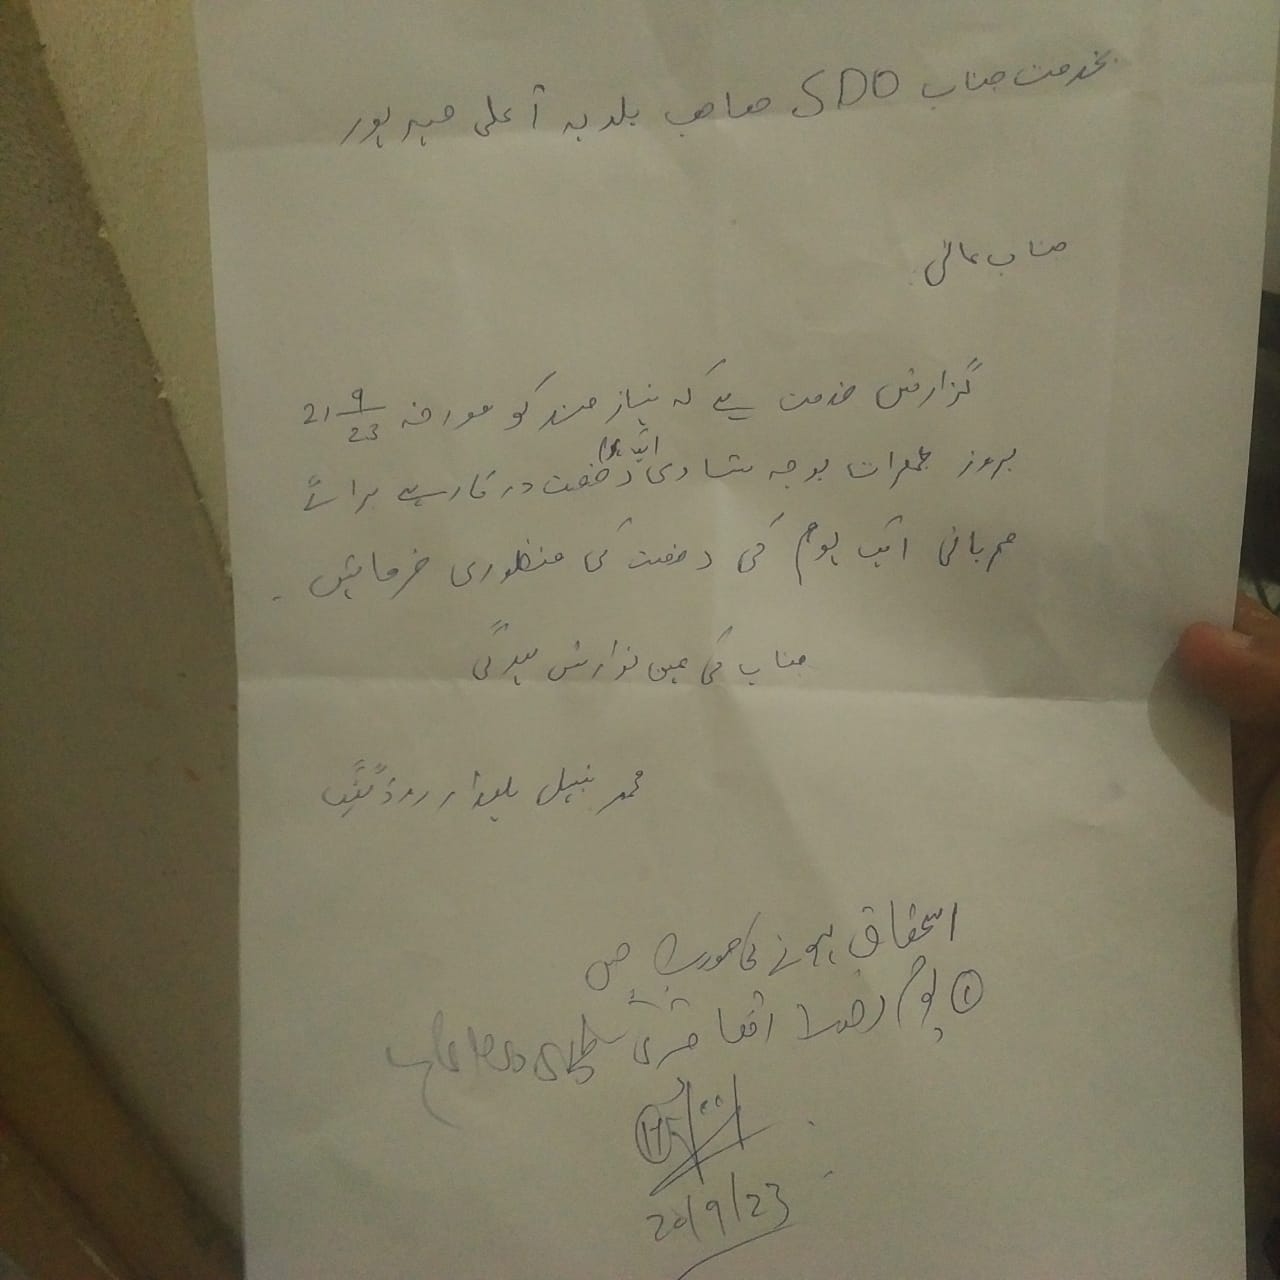 بخدمت جناب SDO صاحب بلدیہ اعلی میرپور
جناب عالی
گزارش خدمت ہے کہ نیاز مند کو مورخہ 21 9/23
بروز جمعرات بوجہ شادی ایک یوم رخصت درکار ہے برائے
مہربانی ایک یوم کی رخصت کی منظوری فرمائیں ۔
جناب کی عین نوازش ہوگی
محمد نبیل بیلدار روڈ گینگ
استحقاق ہونے کی صورت میں
① یوم رخصت اتفاقیہ کی
20/9/23